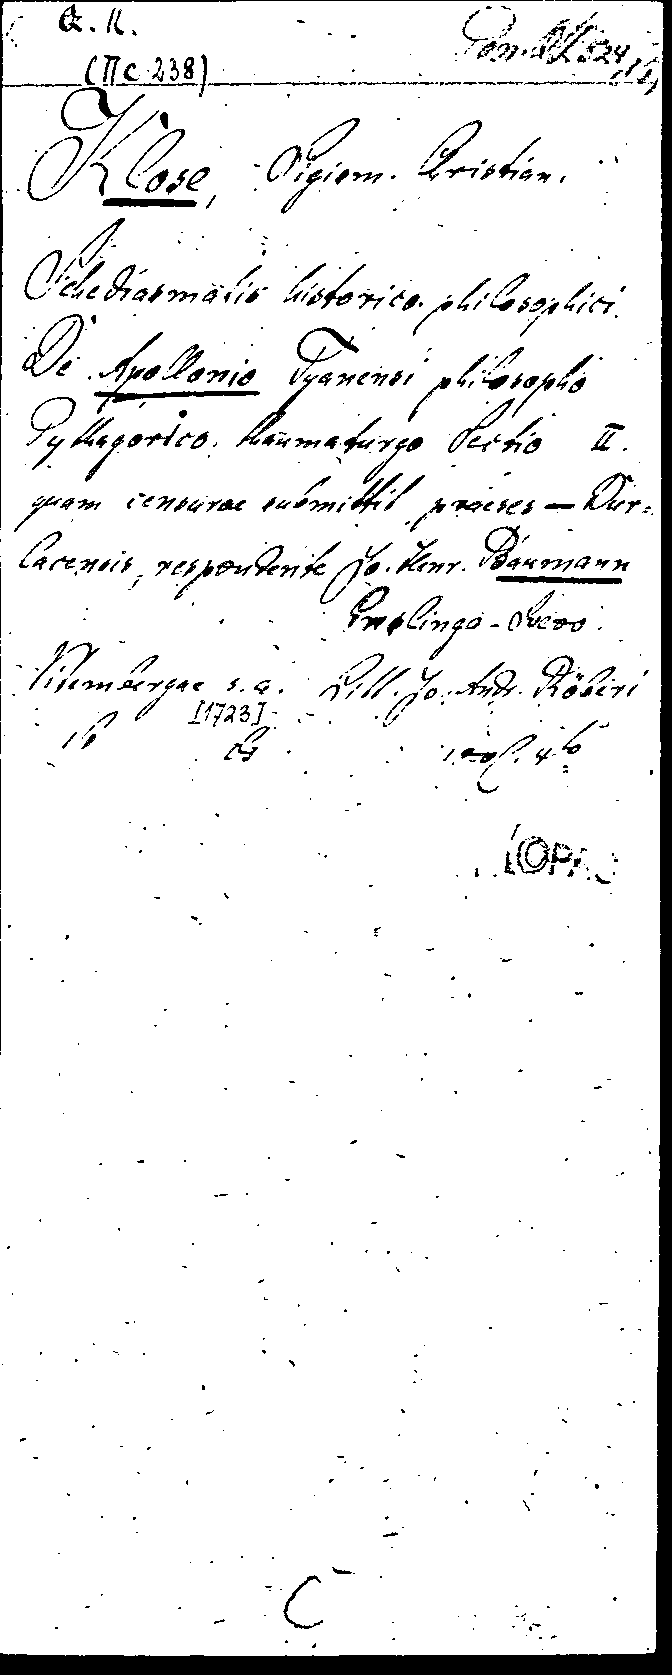 (IIc 238)
Klose, Sigism. Christian.
Schediasmatis historico-philosophici
De Apollonio Tyanensi philosopho
Pythagorico-thaumaturgo Sectio II.
quam censurae submittit praeses — Dur-
lacensis, respondente Jo. Henr. Baumann
Svevo.
Vitembergae s. a. Litt. Jo. Andr. Röberi
[1723]
4to
C